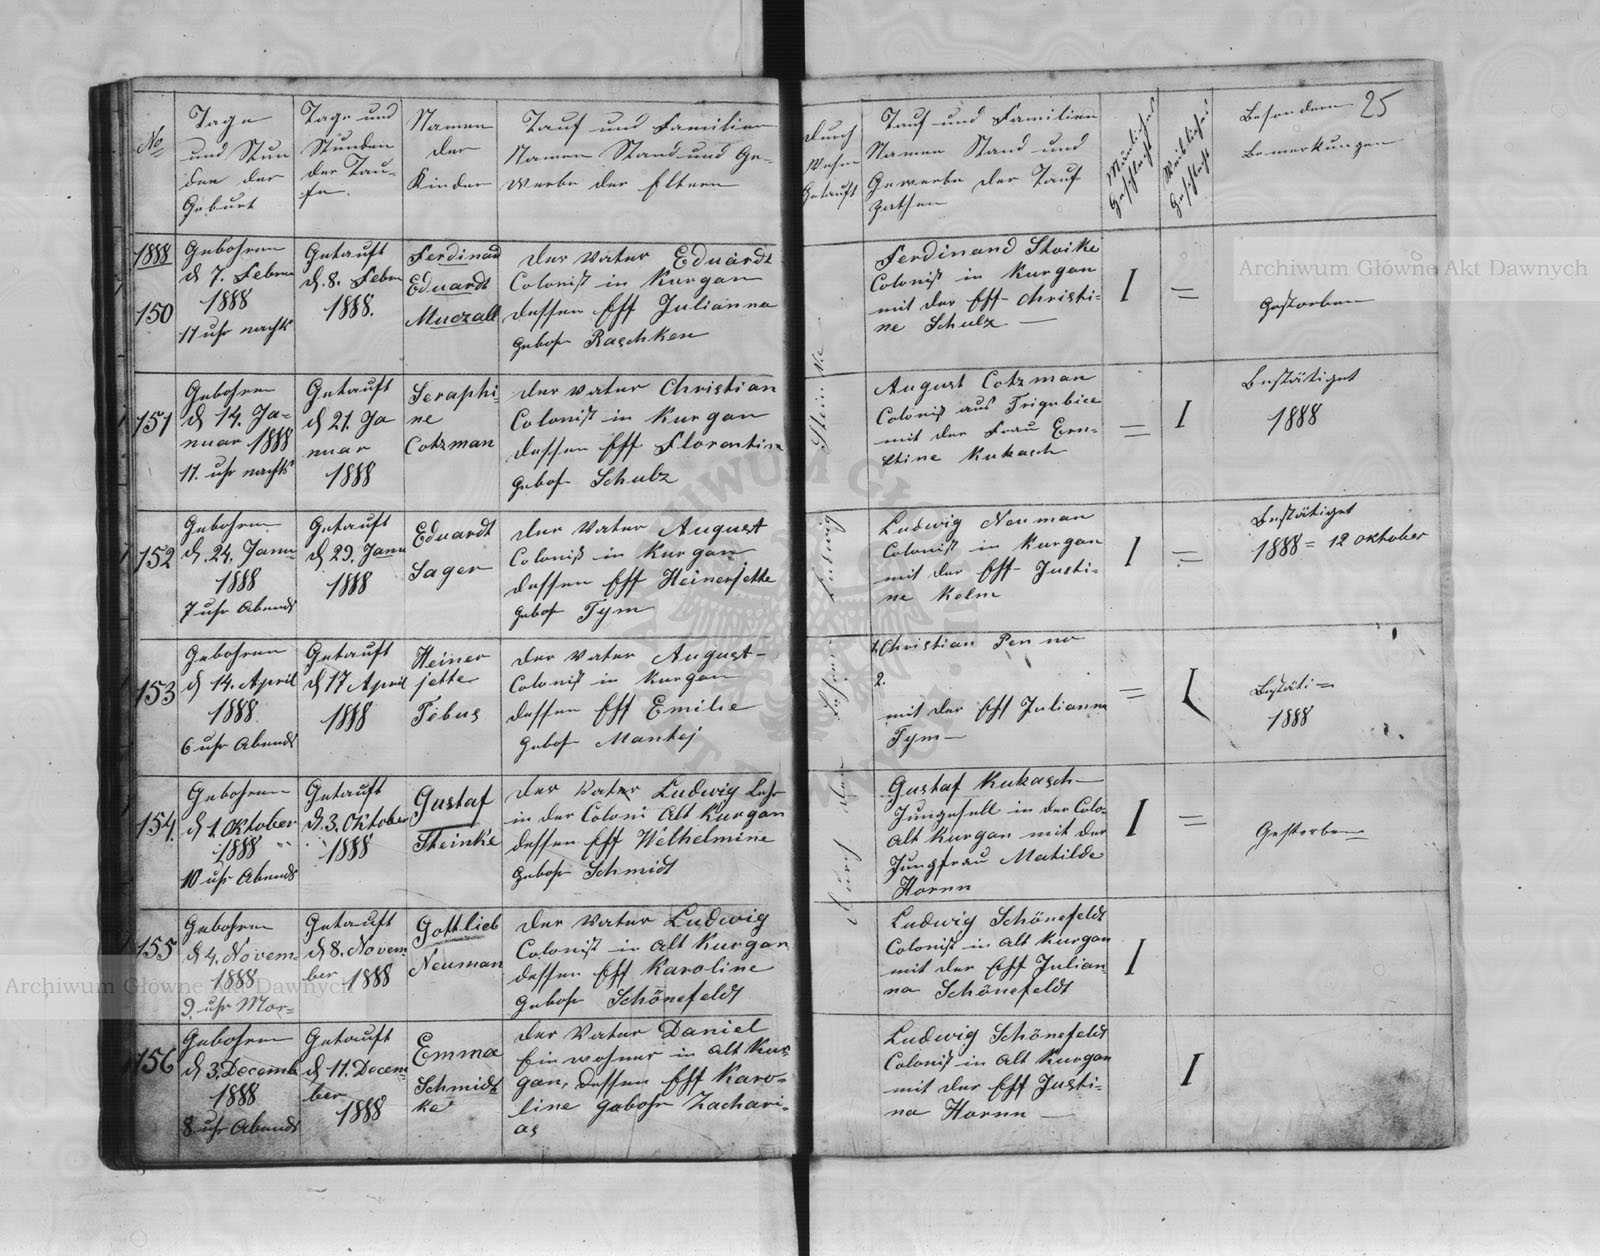 25
No
Tage
und Stun
den der
Geburt
Tage und
Stunden
der Tau-
fe.
Namen
der
Kinder
Tauf und Familien
Namen Stand und Ge-
werbe der Eltern
Durch
Wehm
Getauft
Tauf und Familien
Namen Stand und
Gewerbe der Tauf
Männliches
Geschlecht
Weibliches
Geschlecht
Besondern
Bemerkungen
1888
150
Gebohren
d 7. Febru
1888
11 uhr nachts
Getauft
d. 8. Febru
1888.
Ferdinad
Eduardt
Muczall
Der Vater Eduardt
Colonist in Kurgan
dessen Eff Julianna
geboh Raschken
Ferdinand Stoike
Colonist in Kurgan
mit der Eff- Christi-
ne Schulz —
I
=
Gestorben
151
Gebohren
d 14. Ja-
nuar 1888
11. uhr nachts
Getauft
d 21. Ja
nuar
1888
Seraphi-
ne
Cotzman
Der Vater Christian
Colonist in Kurgan
dessen Eff Florentine
geboh Schulz
August Cotzman
Colonist aus Trigubice
mit der Frau Ern-
stine Kukasch
=
I
Bestätiget
1888
152
Gebohren
d. 24. Janu-
1888
7 uhr Abends
Getauft
d 29. Janu
1888
Eduardt
Sager
Der Vater August
Colonist in Kurgan
dessen Eff Heinerjette
geboh Tym
Ludwig Neuman
Colonist in Kurgan
mit der Eff- Justi-
ne Kelm
I
=
Bestätiget
1888 = 12 oktober
153
Gebohren
d 14. April
1888
6 uhr Abends
Getauft
d 17 April
1888
Heiner
jette
Tebus
Der Vater August-
Colonist in Kurgan
dessen Eff Emilie
geboh Mantej
1. Christian Penno
2.
mit der Eff Julianna
Tym —
=
I
Bestäti=
1888
154.
Gebohren
d 1. Oktober
1888
10 uhr Abends
Getauft
d. 3. Oktober
1888
Gustaf
Steinke
Der Vater Ludwig Lehr
in der Coloni Alt Kurgan
dessen Eff Welhelmine
geboh Schmidt
Gustaf Kukasch—
Jungesell in der Colo-
Alt Kurgan mit der
Jungfrau Matilde
Hornn
I
=
Gestorben
155
Gebohren
d 4. Novem-
1888
9. uhr Mor=
Getauft
d 8. Novem-
ber 1888
Gottlieb
Neuman
Der Vater Ludwig
Colonist in Alt Kurgan
dessen Eff Karoline
geboh Schönefeldt
Ludwig Schönefeldt
Colonist in Alt Kurgan
mit der Eff Julian-
na Schönefeldt
I
156
Gebohren
d 3. Decemb
1888
8. uhr Abends
Getauft
d 11. Decem-
ber
1888
Emma
Schmidt
ke
Der Vater Daniel
Einwohner in Alt Kur
gan, dessen Eff Karo-
line gebohr Zachari-
as
Ludwig Schönefeldt
Colonist in Alt Kurgan
mit der Eff Justi-
na Hornn —
I
Durch den
Ludwig
Steinke
Archiwum Główne Akt Dawnych
Archiwum Główne Akt Dawnych